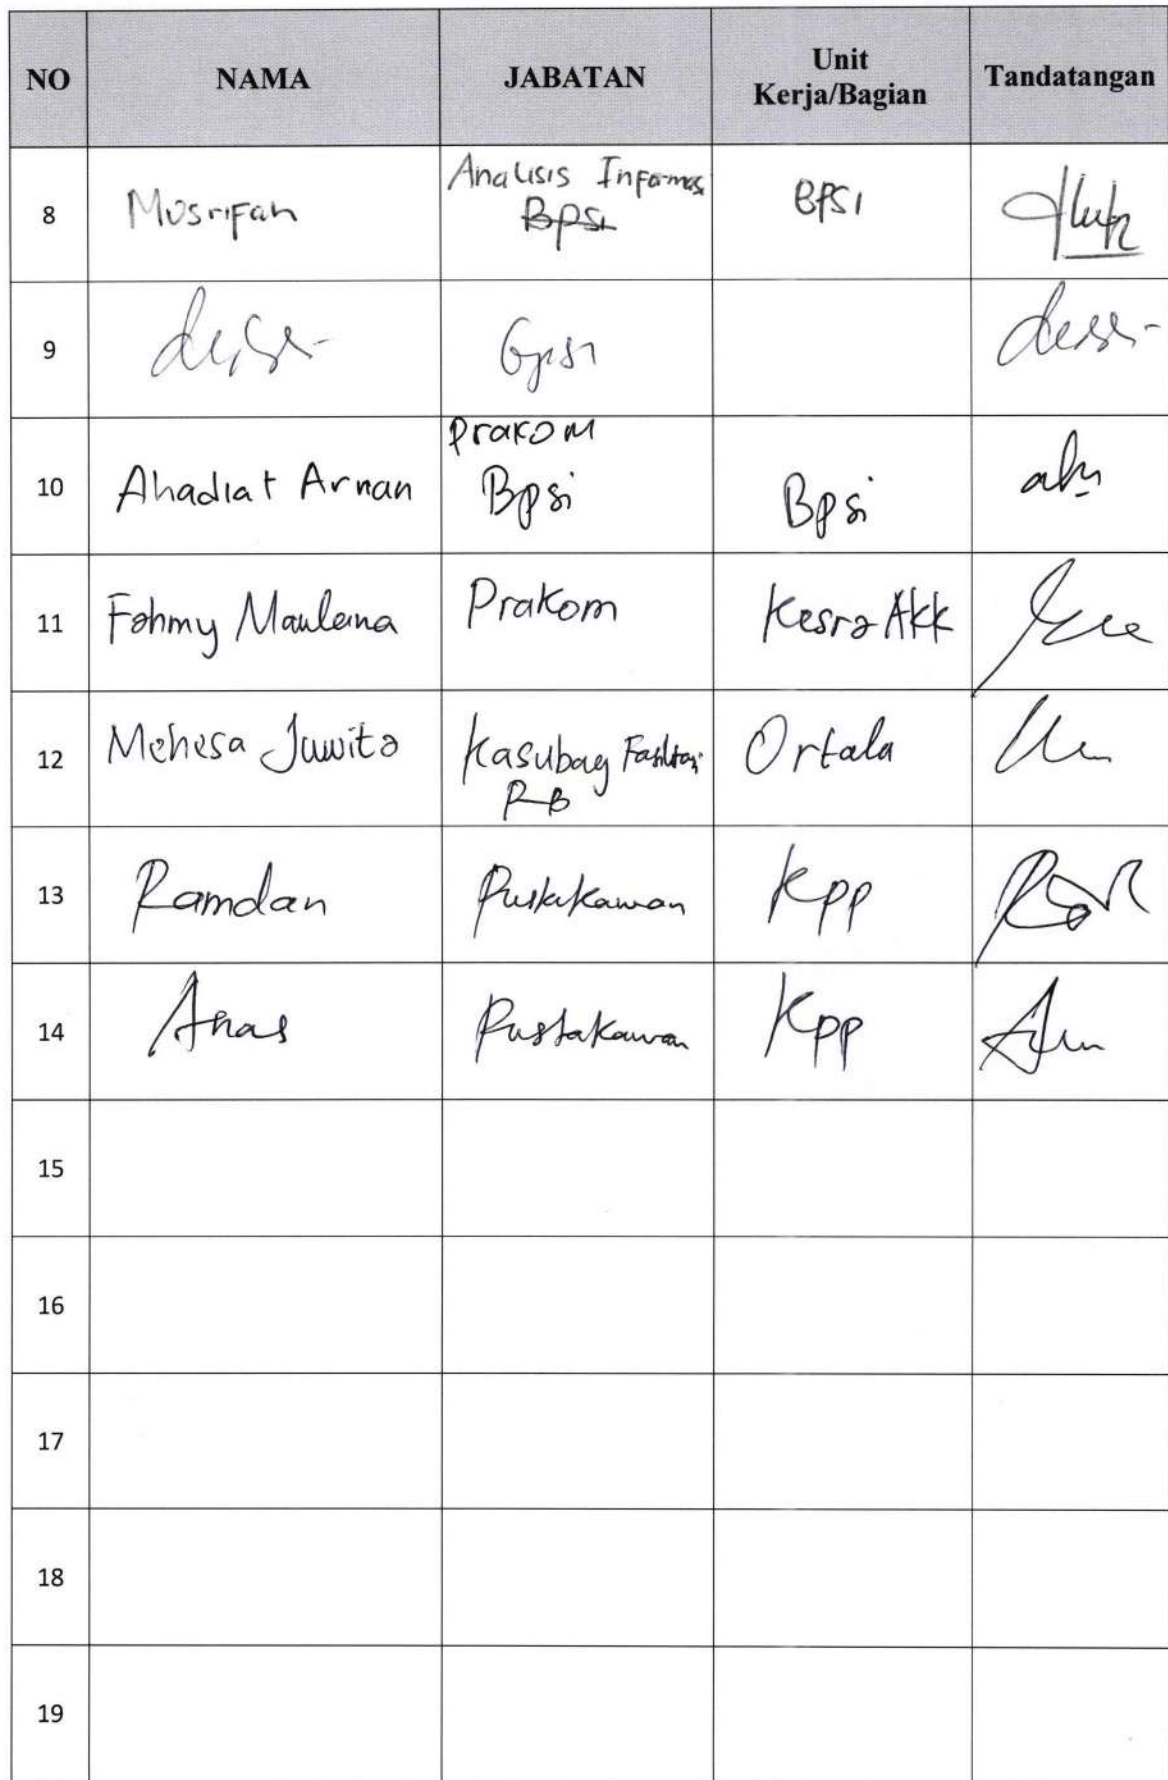 NO NAMA JABATAN Unit Kerja/Bagian Tandatangan
8 Musrifah Analisis Informasi BPSI BPSI
9 BPSI
10 Ahadiat Arnan Prakom Bpsi Bpsi
11 Fahmy Maulana Prakom Kesra Akk
12 Juwita Kasubag RB Ortala
13 Ramdan Pustakawan Kpp
14 Anas Pustakawan Kpp
15
16
17
18
19